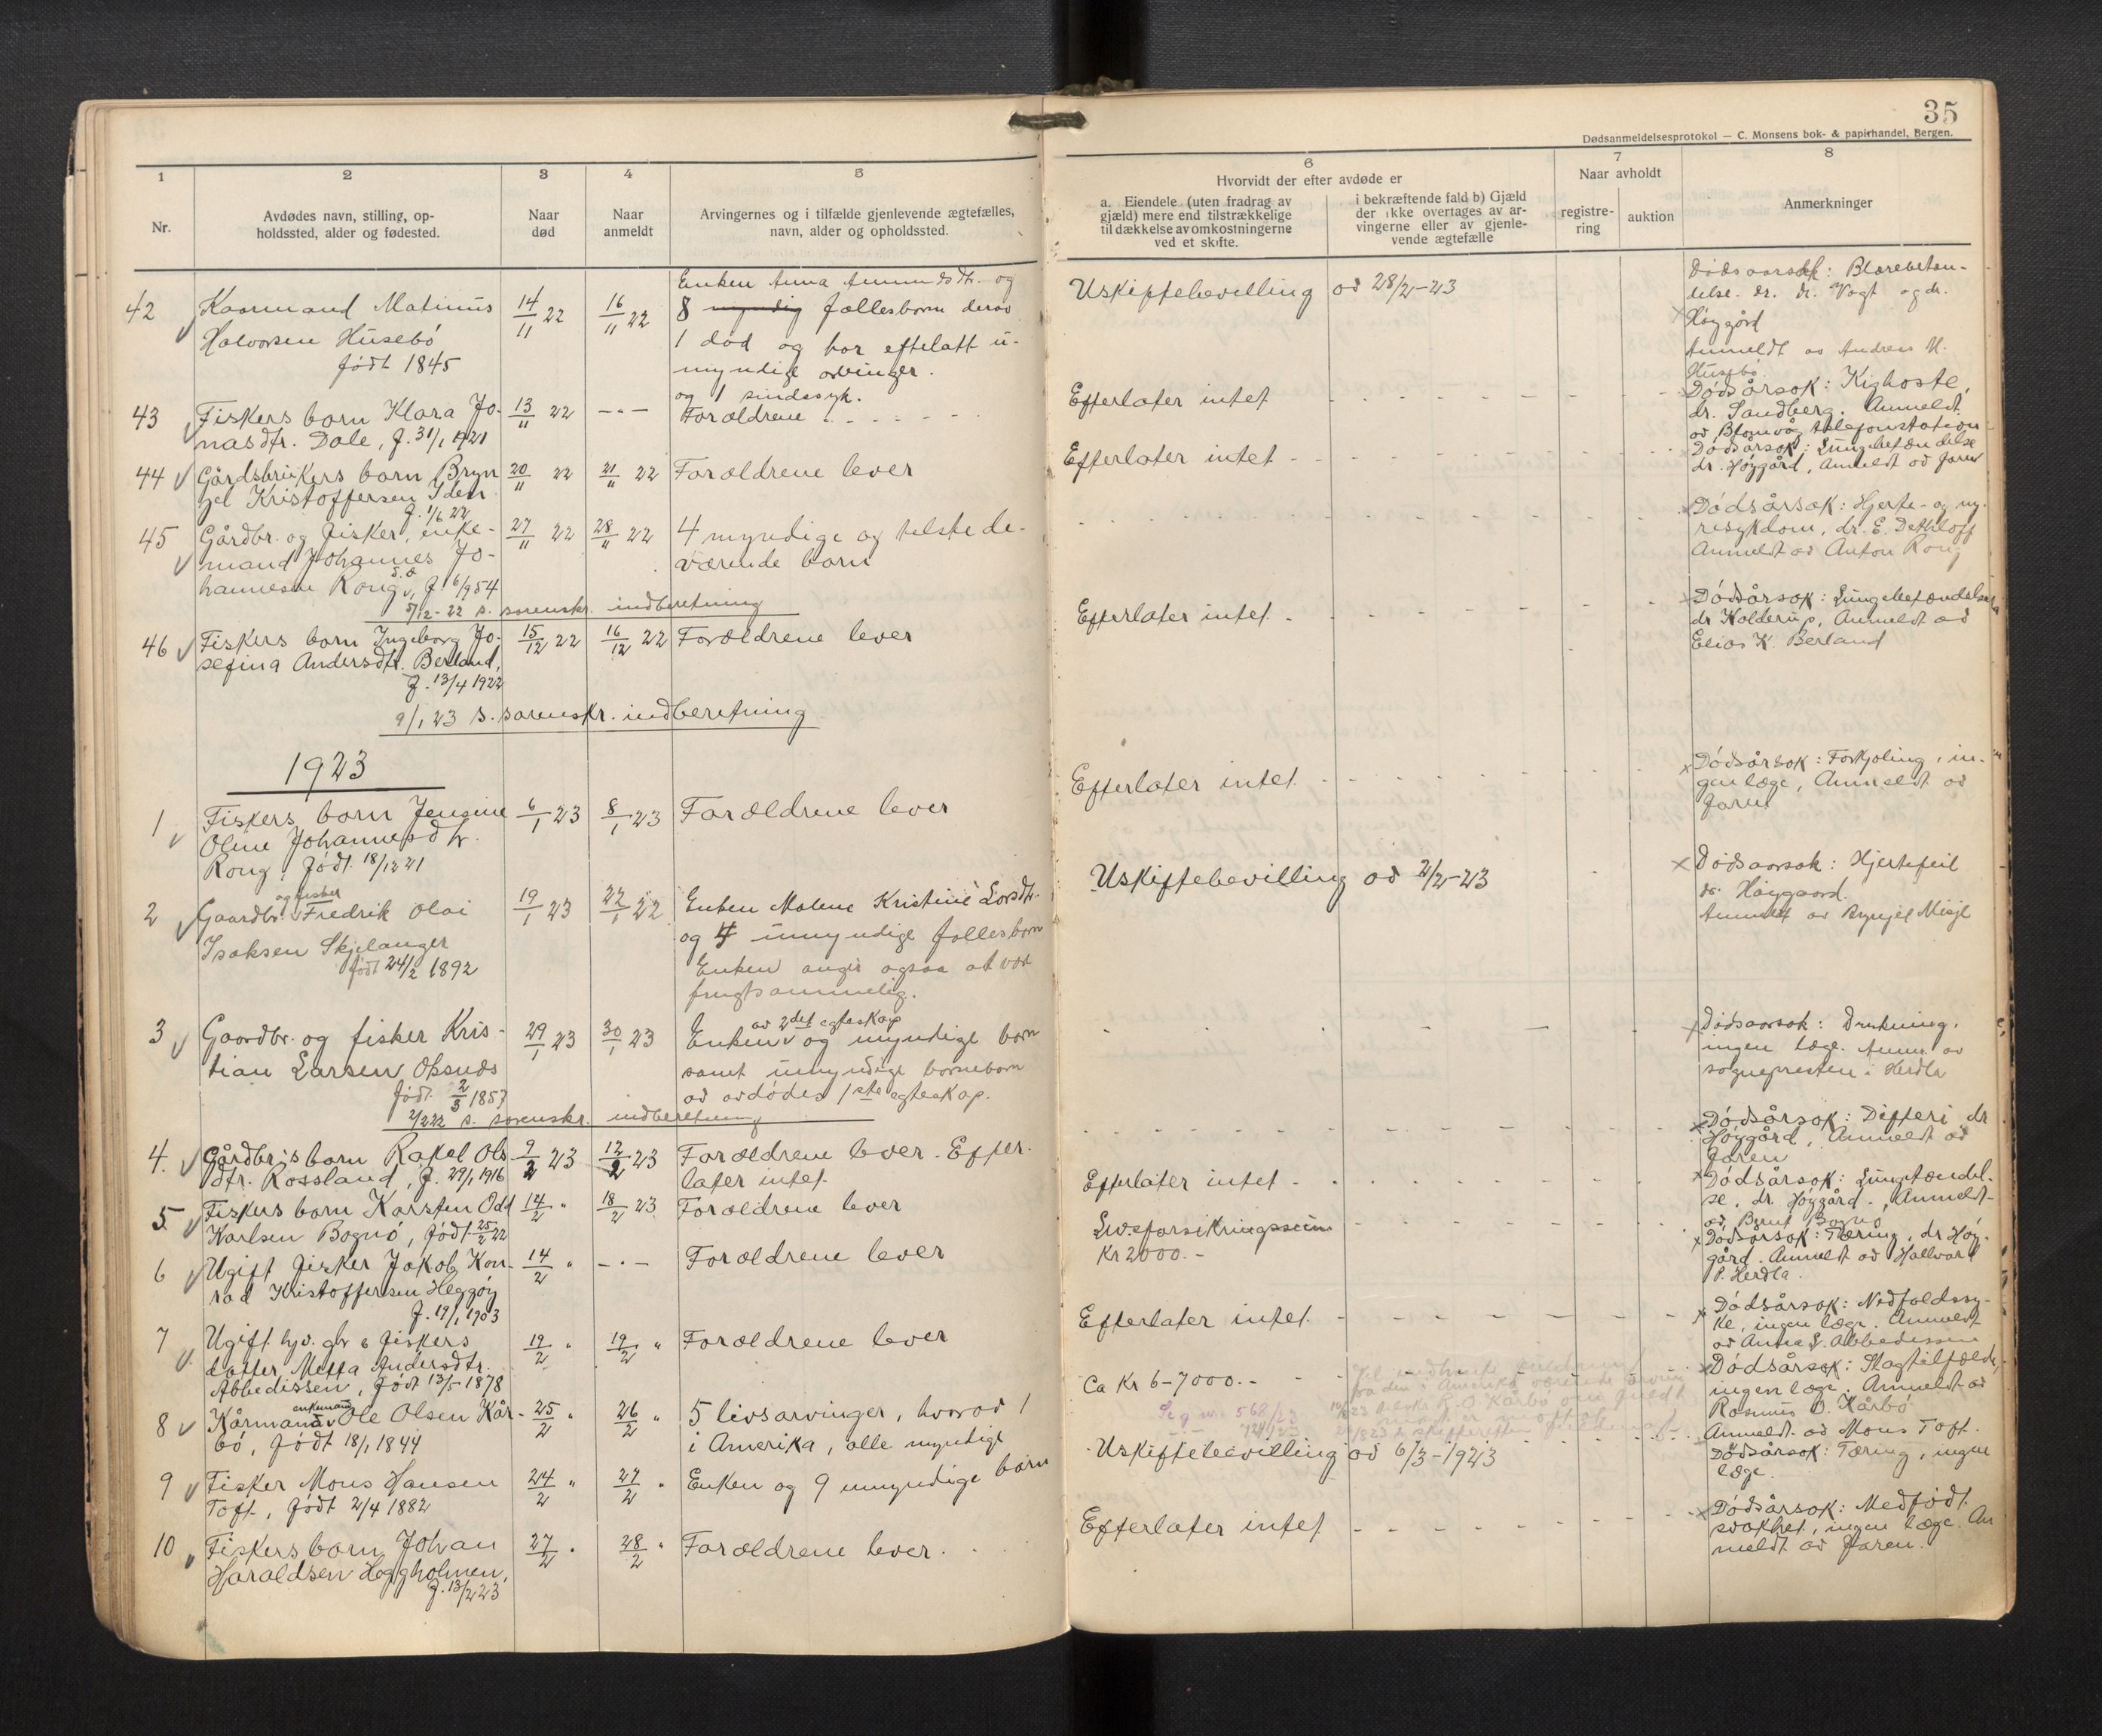 35
Dødsanmeldelsesprotokol — C. Monsens bok- & papirhandel, Bergen.
1
Nr.
2
Avdødes navn, stilling, op-
holdssted, alder og fødested.
3
Naar
død
4
Naar
anmeldt
5
Arvingernes og i tilfælde gjenlevende ægtefælles,
navn, alder og opholdssted.
6
Hvorvidt der efter avdøde er
a. Eiendele (uten fradrag av
gjæld) mere end tilstrækkelige
til dækkelse av omkostningerne
ved et skifte.
i bekræftende fald b) Gjæld
der ikke overtages av ar-
vingerne eller av gjenle-
vende ægtefælle
7
Naar avholdt
registre-
ring
auktion
8
Anmerkninger
42
Kaarmand Matinus
Halvorsen Husebö
født 1845
14/11 22
16/11 22
Enken Anna Amundsdtr. og
8 myndig fællesbarn derav
1 död og har efterlatt u-
myndige arvinger.
og 1 sindssyk.
Uskiftebevilling av 28/2-23
Dødsaarsak: Blærebetæn-
delse. dr. dr. Vogt og dr.
Høygård
Anmeldt av Andreas M.
Husebø
43
Fiskers barn Klara Jo-
nasdtr. Dale, f. 31/1 1921
13/11 22
— " —
Forældrene
Efterlater intet
Dødsårsak: Kighoste,
dr. Sandberg. Anmeldt
av Blomvåg telefonstation
44
Gårdsbrukers barn Bryn
jel Kristoffersen Iden
f. 1/6 22
20/11 22
21/11 22
Forældrene lever
Efterlater intet
Dødsårsak: Lungebetændelse
dr. Høygård, Anmeldt av faren
45
Gårdbr. og fisker, enke-
mand Johannes Jo-
hannesen Rong s.d., f. 6/9 54
27/11 22
28/11 22
4 myndige og tilstede-
værende barn
Dødsårsak: Hjerte- og ny-
resykdom, dr. E. Dethloff
Anmeldt av Anton Rong
5/12-22 s. sorenskr. indberetning
46
Fiskers barn Ingeborg Jo-
sefina Andersdtr. Berland,
f. 13/4 1922
15/12 22
16/12 22
Forældrene lever
Efterlater intet
Dødsårsak: Lungebetændelse
dr Kolderup, Anmeldt av
Elias K. Berland
9/1 23 s. sorenskr. indberetning
1923
1
Fiskers barn Jensine
Oline Johannesdtr.
Rong, født 18/12 21
6/1 23
8/1 23
Forældrene lever
Efterlater intet
Dødsårsak: Forkjøling, in-
gen læge, Anmeldt av
faren
2
Gaardbr. og fisker Fredrik Olai
Isaksen Skjelanger
født 24/2 1892
19/1 23
22/1 22
Enken Malene Kristine Larsdtr.
og 4 umyndige fællesbarn
Enken angir ogsaa at være
frugtsommelig.
Uskiftebevilling av 2/2-23
Dødsaarsak: Hjertefeil
dr. Høygaard.
Anmeldt av Brynjel Misje
3
Gaardbr. og fisker Kris-
tian Larsen Oksnes
født 2/3 1857
29/1 23
30/1 23
Enken av 2det egteskap og myndige barn
samt umyndige barnebarn
av avdødes 1ste egteskap.
Dødsaarsak: Drukning.
ingen læge. Anm. av
sognepresten i Herdla
2/2 22 s. sorenskr. indberetning
4.
Gårdbr.s barn Rakel Ols
dtr. Rossland, f. 27/1 1916
9/2 23
12/2 23
Forældrene lever. Efter-
later intet.
Dødsårsak: Difteri, dr
Høygård, Anmeldt av
faren
5
Fiskers barn Karsten Odd
Karlsen Bognö, født 25/2 22
14/2 "
18/2 23
Forældrene lever
Efterlater intet
Dødsårsak: Lungetændel-
se, dr. Høygård, Anmeldt
av Bernt Bognø
6
Ugift fisker Jakob Kon-
rad Kristoffersen Heggøy
f. 19/1 1903
14/2 "
— " —
Forældrene lever
Livsforsikringssum
Kr 2000.-
Dødsårsak: Tæring, dr Høy-
gård. Anmeldt av Hallvard
P. Herdla.
7
Ugift hjv. gbr & fiskers
datter Metta Andersdtr.
Abbedissen, født 13/5 1878
19/2 "
19/2 "
Forældrene lever
Efterlater intet.
Dødsårsak: Nedfaldssy-
ke, ingen læge. Anmeldt
av Anna L. Abbedissen
8
Kårmand enkemand Ole Olsen Kår-
bö, født 18/1 1844
25/2 "
26/2 "
5 livsarvinger, hvorav 1
i Amerika, alle myndige
Ca Kr 6-7000.-
Dødsårsak: Slagtilfælde,
ingen læge. Anmeldt av
Rasmus O. Kårbø
9
Fisker Mons Hansen
Toft, født 2/4 1882
24/2 "
27/2 "
Enken og 9 umyndige barn
Uskiftebevilling av 6/3-1923
Anmeldt av Mons Toft.
Dødsårsak: Tæring, ingen
læge.
10
Fiskers barn Johan
Haraldsen Heggholmen,
f. 13/2 23
27/2 "
28/2 "
Forældrene lever.
Efterlater intet
Dødsårsak: Medfødt
svakhet, ingen læge. An
meldt av faren.